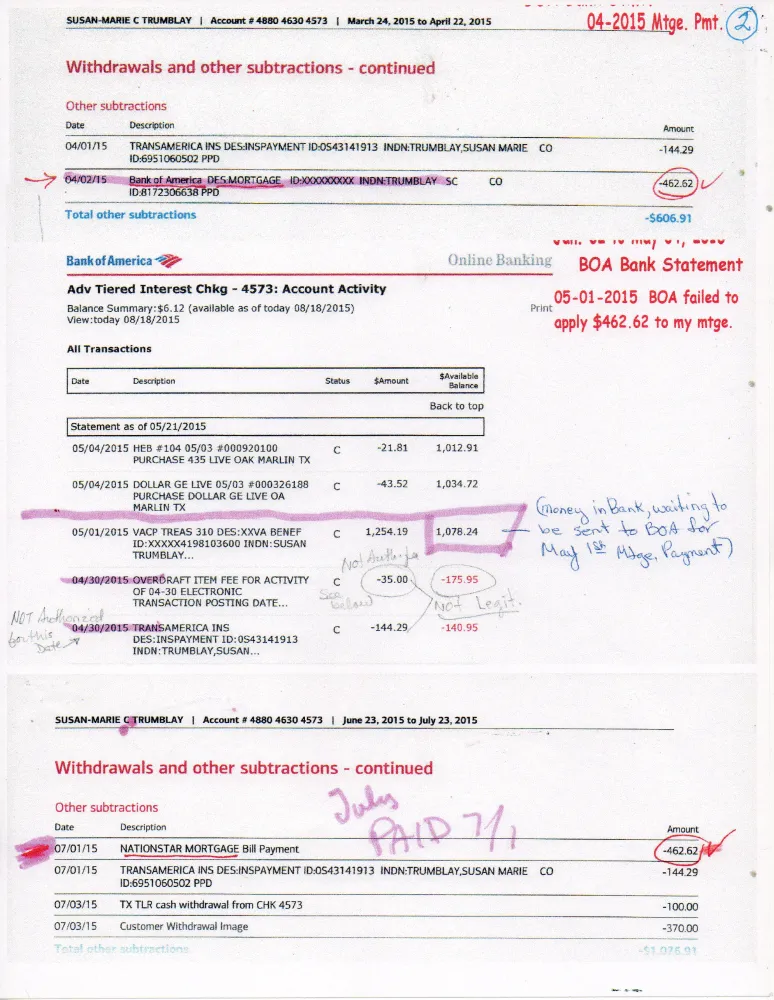 SUSAN-MARIE C TRUMBLAY | Account # 4880 4630 4573 | March 24, 2015 to April 22, 2015
04-2015 Mtge. Pmt. 2
Withdrawals and other subtractions - continued
Other subtractions
Date Description Amount
04/01/15 TRANSAMERICA INS DES:INSPAYMENT ID:0S43141913 INDN:TRUMBLAY,SUSAN MARIE CO -144.29
ID:6951060502 PPD
04/02/15 Bank of America DES:MORTGAGE ID:XXXXXXXXX INDN:TRUMBLAY SC CO -462.62
ID:8172306638 PPD
Total other subtractions -$606.91
BankofAmerica Online Banking
BOA Bank Statement
Adv Tiered Interest Chkg - 4573: Account Activity
Balance Summary:$6.12 (available as of today 08/18/2015)
View:today 08/18/2015
Print
05-01-2015 BOA failed to
apply $462.62 to my mtge.
All Transactions
Date Description Status $Amount $Available
Balance
Back to top
Statement as of 05/21/2015
05/04/2015 HEB #104 05/03 #000920100 C -21.81 1,012.91
PURCHASE 435 LIVE OAK MARLIN TX
05/04/2015 DOLLAR GE LIVE 05/03 #000326188 C -43.52 1,034.72
PURCHASE DOLLAR GE LIVE OA
MARLIN TX
05/01/2015 VACP TREAS 310 DES:XXVA BENEF C 1,254.19 1,078.24
ID:XXXXX4198103600 INDN:SUSAN
TRUMBLAY...
(Money in Bank, waiting to
be sent to BOA for
May 1st Mtge. Payment)
04/30/2015 OVERDRAFT ITEM FEE FOR ACTIVITY C -35.00 -175.95
OF 04-30 ELECTRONIC
TRANSACTION POSTING DATE...
See
below
Not Legit.
NOT Authorized
for this
Date
04/30/2015 TRANSAMERICA INS C -144.29 -140.95
DES:INSPAYMENT ID:0S43141913
INDN:TRUMBLAY,SUSAN...
SUSAN-MARIE C TRUMBLAY | Account # 4880 4630 4573 | June 23, 2015 to July 23, 2015
Withdrawals and other subtractions - continued
Other subtractions
July
PAID 7/1
Date Description Amount
07/01/15 NATIONSTAR MORTGAGE Bill Payment -462.62
07/01/15 TRANSAMERICA INS DES:INSPAYMENT ID:0S43141913 INDN:TRUMBLAY,SUSAN MARIE CO -144.29
ID:6951060502 PPD
07/03/15 TX TLR cash withdrawal from CHK 4573 -100.00
07/03/15 Customer Withdrawal Image -370.00
Total other subtractions -$1,076.91